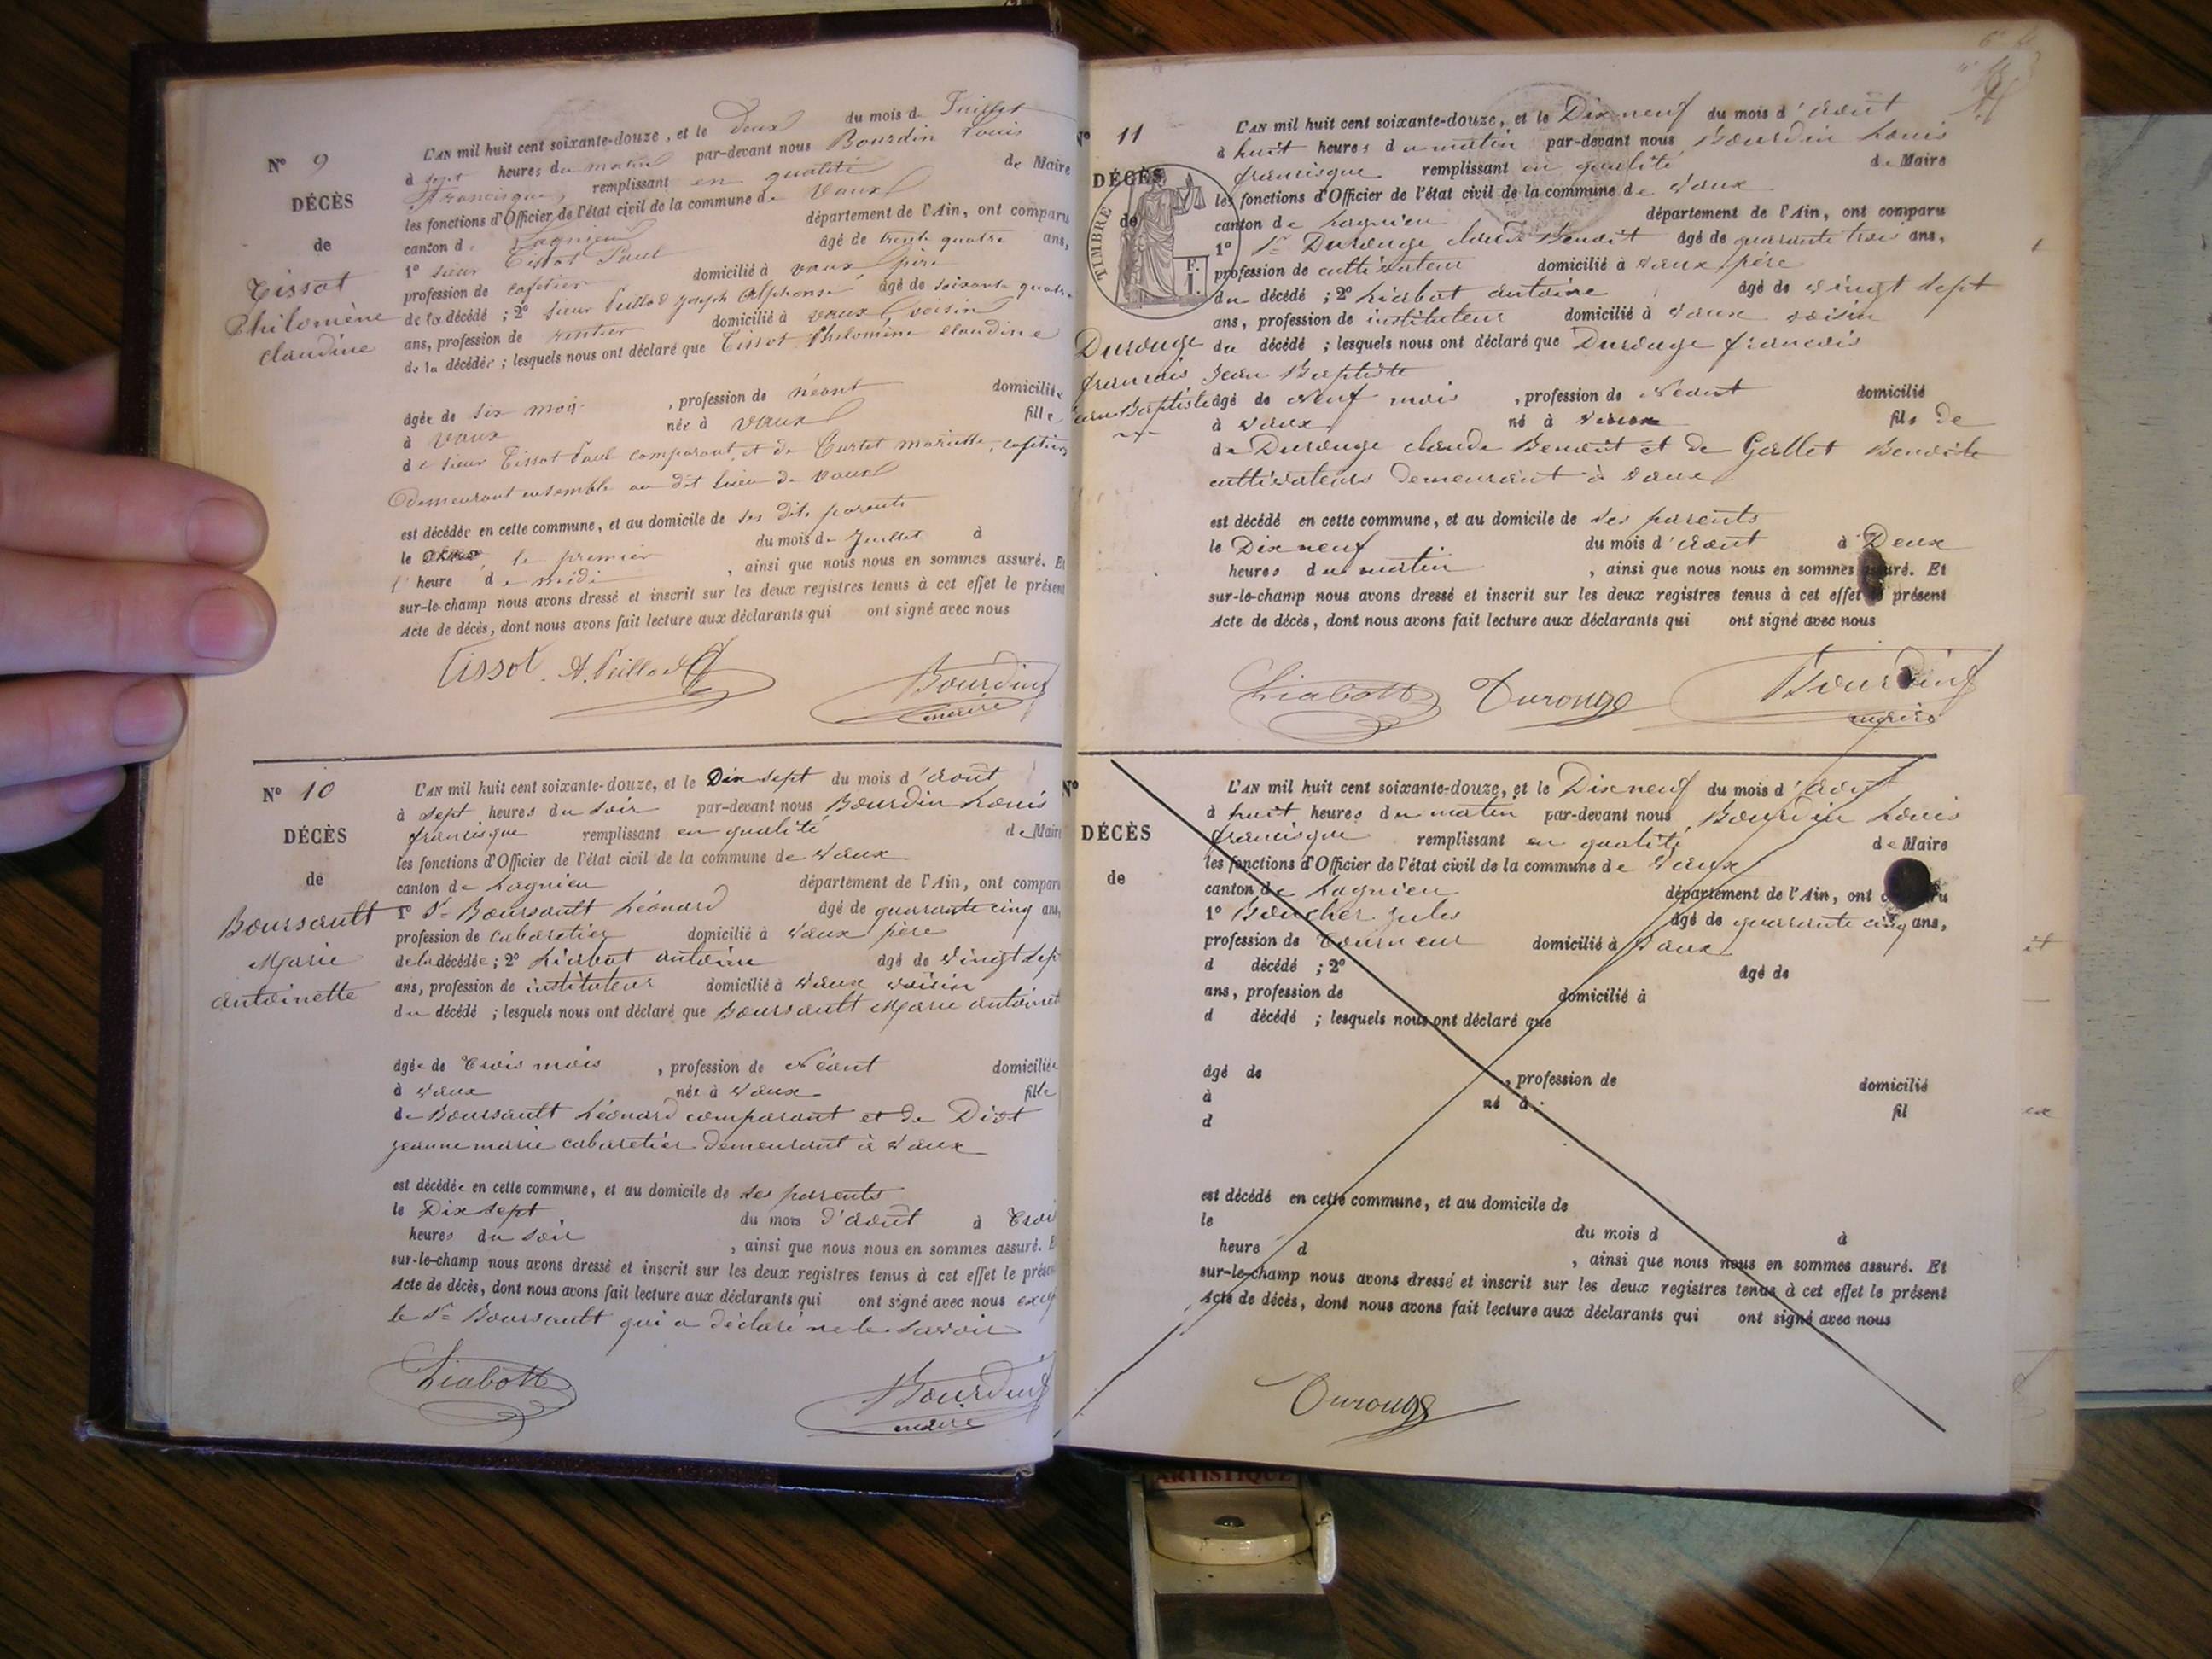 N° 9
DÉCÈS
de
Tissot
Philomène
claudine
L'AN mil huit cent soixante-douze, et le deux du mois de Juillet
à sept heures du matin par-devant nous Bourdin Louis
Francisque, remplissant en qualité de Maire
les fonctions d'Officier de l'état civil de la commune de Vaux
canton de Lagnieu département de l'Ain, ont comparu
1° sieur Tissot Paul âgé de trente quatre ans,
profession de cafetier domicilié à vaux père
de la décédé ; 2° sieur Peillod Joseph Alphonse âgé de soixante quatre
ans, profession de rentier domicilié à vaux voisin
de la décédée ; lesquels nous ont déclaré que Tissot Philomène claudine
âgée de six mois , profession de néant domiciliée
à vaux née à vaux fille
de sieur Tissot Paul comparant, et de Curtet mariette, cafetiers
demeurant ensemble au dit lieu de vaux
est décédée en cette commune, et au domicile de ses dits parents
le le premier du mois de Juillet à
l'heure de midi , ainsi que nous nous en sommes assuré. Et
sur-le-champ nous avons dressé et inscrit sur les deux registres tenus à cet effet le présent
Acte de décès, dont nous avons fait lecture aux déclarants qui ont signé avec nous
Tissot. A. Peillod Bourdin
maire
N° 10
DÉCÈS
de
Boursault
Marie
antoinette
L'AN mil huit cent soixante-douze, et le Dix sept du mois d'août
à sept heures du soir par-devant nous Bourdin Louis
francisque remplissant en qualité de Maire
les fonctions d'Officier de l'état civil de la commune de Vaux
canton de Lagnieu département de l'Ain, ont compar
1° Sr Boursault Léonard âgé de quarante cinq ans,
profession de cabaretier domicilié à Vaux père
de la décédée ; 2° Liabot antoine âgé de vingt sep
ans, profession de instituteur domicilié à Vaux voisin
du décédé ; lesquels nous ont déclaré que Boursault Marie antoinet
âgée de trois mois , profession de Néant domiciliée
à Vaux née à Vaux fille
de Boursault Léonard comparant et de Diot
jeanne marie cabaretier demeurant à Vaux
est décédée en cette commune, et au domicile de ses parents
le Dix sept du mois d'août à trois
heures du soir , ainsi que nous nous en sommes assuré. E
sur-le-champ nous avons dressé et inscrit sur les deux registres tenus à cet effet le présen
Acte de décès, dont nous avons fait lecture aux déclarants qui ont signé avec nous
le Sr Boursault qui a déclaré ne le savoir
Liabott Bourdin
maire
N° 11
DÉCÈS
de
TIMBRE
F.
1.
Durouge
francois
jean Baptiste
L'AN mil huit cent soixante-douze, et le Dix neuf du mois d'août
à huit heures du matin par-devant nous Bourdin Louis
francisque remplissant en qualité de Maire
les fonctions d'Officier de l'état civil de la commune de Vaux
canton de Lagnieu département de l'Ain, ont comparu
1° Sr Durouge claude Benoit âgé de quarante trois ans,
profession de cultivateur domicilié à Vaux père
du décédé ; 2° Liabot antoine âgé de vingt sept
ans, profession de instituteur domicilié à Vaux voisin
du décédé ; lesquels nous ont déclaré que Durouge francois
Jean Baptiste
âgé de Neuf mois , profession de Néant domicilié
à Vaux né à Vaux fils de
de Durouge claude Benoit et de Gallet Benoite
cultivateurs demeurant à Vaux
est décédé en cette commune, et au domicile de ses parents
le Dix neuf du mois d'août à Deux
heures du matin , ainsi que nous nous en sommes assuré. Et
sur-le-champ nous avons dressé et inscrit sur les deux registres tenus à cet effet le présent
Acte de décès, dont nous avons fait lecture aux déclarants qui ont signé avec nous
Liabott Durouge Bourdin
maire
N°
DÉCÈS
de
L'AN mil huit cent soixante-douze, et le Dix neuf du mois d'août
à huit heures du matin par-devant nous Bourdin Louis
francisque remplissant en qualité de Maire
les fonctions d'Officier de l'état civil de la commune de Vaux
canton de Lagnieu département de l'Ain, ont comparu
1° Boucher jules âgé de quarante cinq ans,
profession de tourneur domicilié à Vaux
d décédé ; 2° âgé de
ans, profession de domicilié à
d décédé ; lesquels nous ont déclaré que
âgé de , profession de domicilié
à né à fil
d
est décédé en cette commune, et au domicile de
le du mois d à
heure d , ainsi que nous nous en sommes assuré. Et
sur-le-champ nous avons dressé et inscrit sur les deux registres tenus à cet effet le présent
Acte de décès, dont nous avons fait lecture aux déclarants qui ont signé avec nous
Durouge
ARTISTIQUE